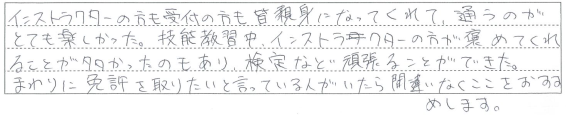 インストラクターの方も受付の方も皆親身になってくれて、通うのが
とても楽しかった。技能教習中、インストラクターの方が褒めてくれ
ることが多かったのもあり、検定など頑張ることができた。
まわりに免許を取りたいと言っている人がいたら間違いなくここをおすす
めします。